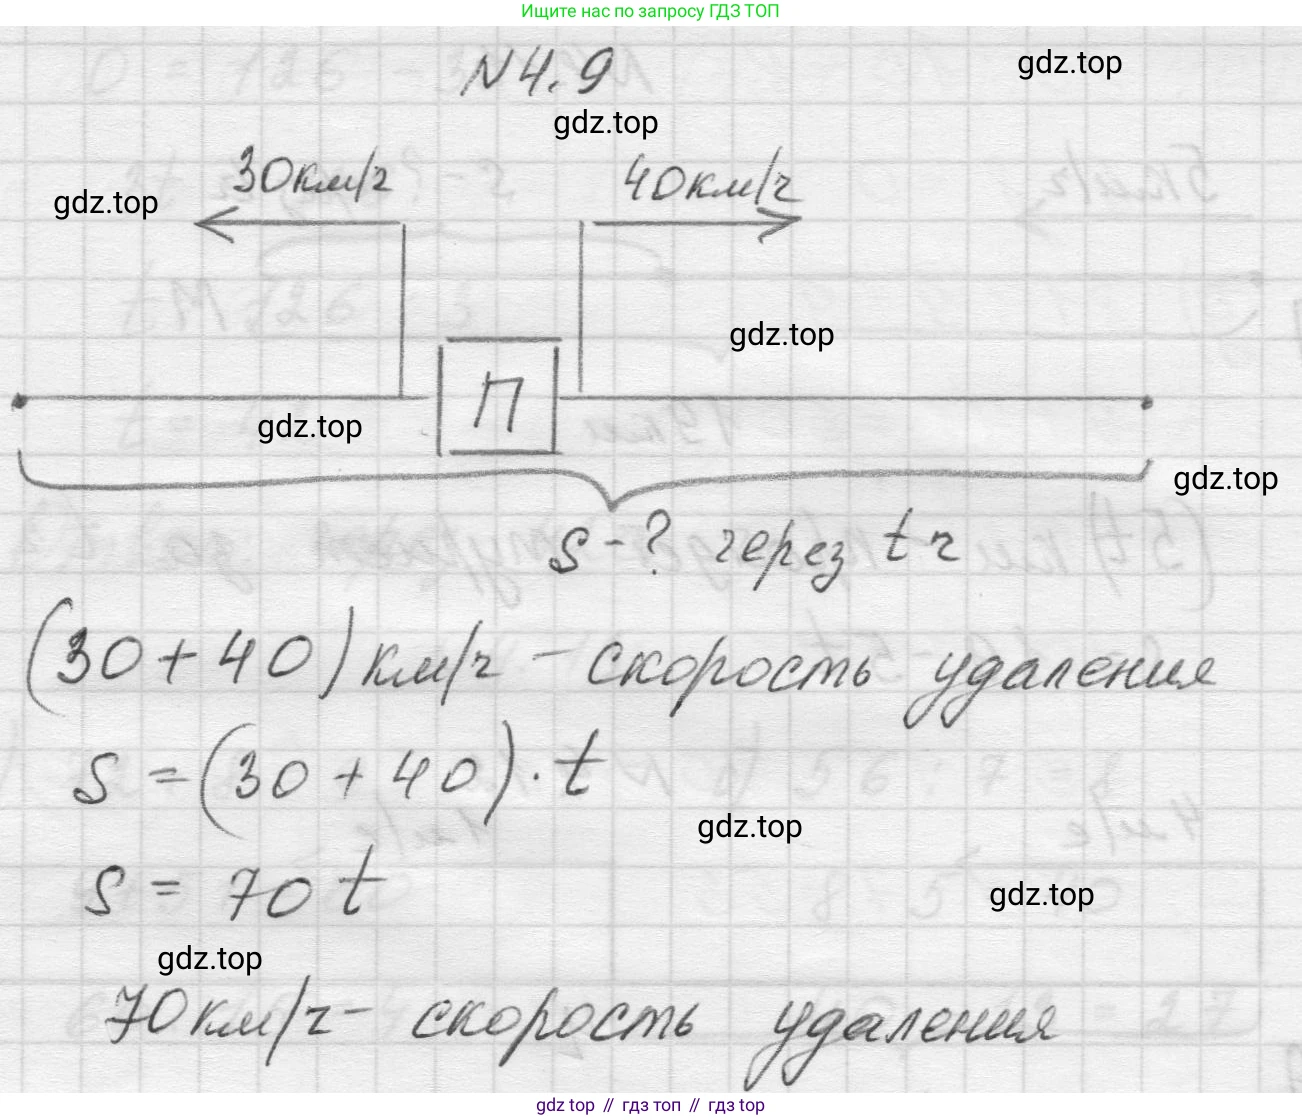 Ищите нас по запросу ГДЗ ТОП
N4.9
gdz.top
gdz.top
30км/ч
40км/ч
gdz.top
gdz.top
П
gdz.top
gdz.top
S-? через t ч
(30+40) км/ч - скорость удаления
S = (30 + 40) · t
gdz.top
S = 70 t
gdz.top
gdz.top
70км/ч- скорость удаления
gdz top // гдз топ // gdz top